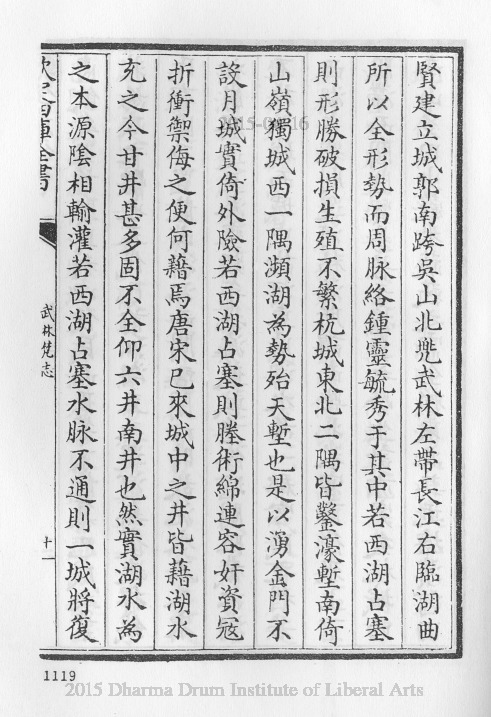 賢建立城郭南跨吳山北兠武林左帶長江右臨湖曲
所以全形勢而周脉絡鍾靈毓秀于其中若西湖占塞
則形勝破損生殖不繁杭城東北二隅皆鑿濠塹南倚
山嶺獨城西一隅瀕湖為勢殆天塹也是以湧金門不
設月城實倚外險若西湖占塞則塍術綿連容奸資冦
折衝禦侮之便何藉焉唐宋已來城中之井皆藉湖水
充之今甘井甚多固不全仰六井南井也然實湖水為
之本源陰相輸灌若西湖占塞水脉不通則一城將復
欽定四庫全書
武林梵志
十一
1119
2015 Dharma Drum Institute of Liberal Arts